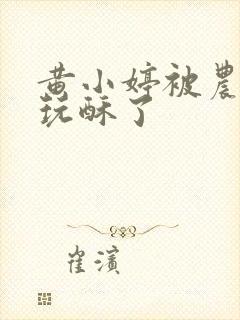 黄小婷被農
玩酥了
崔濱